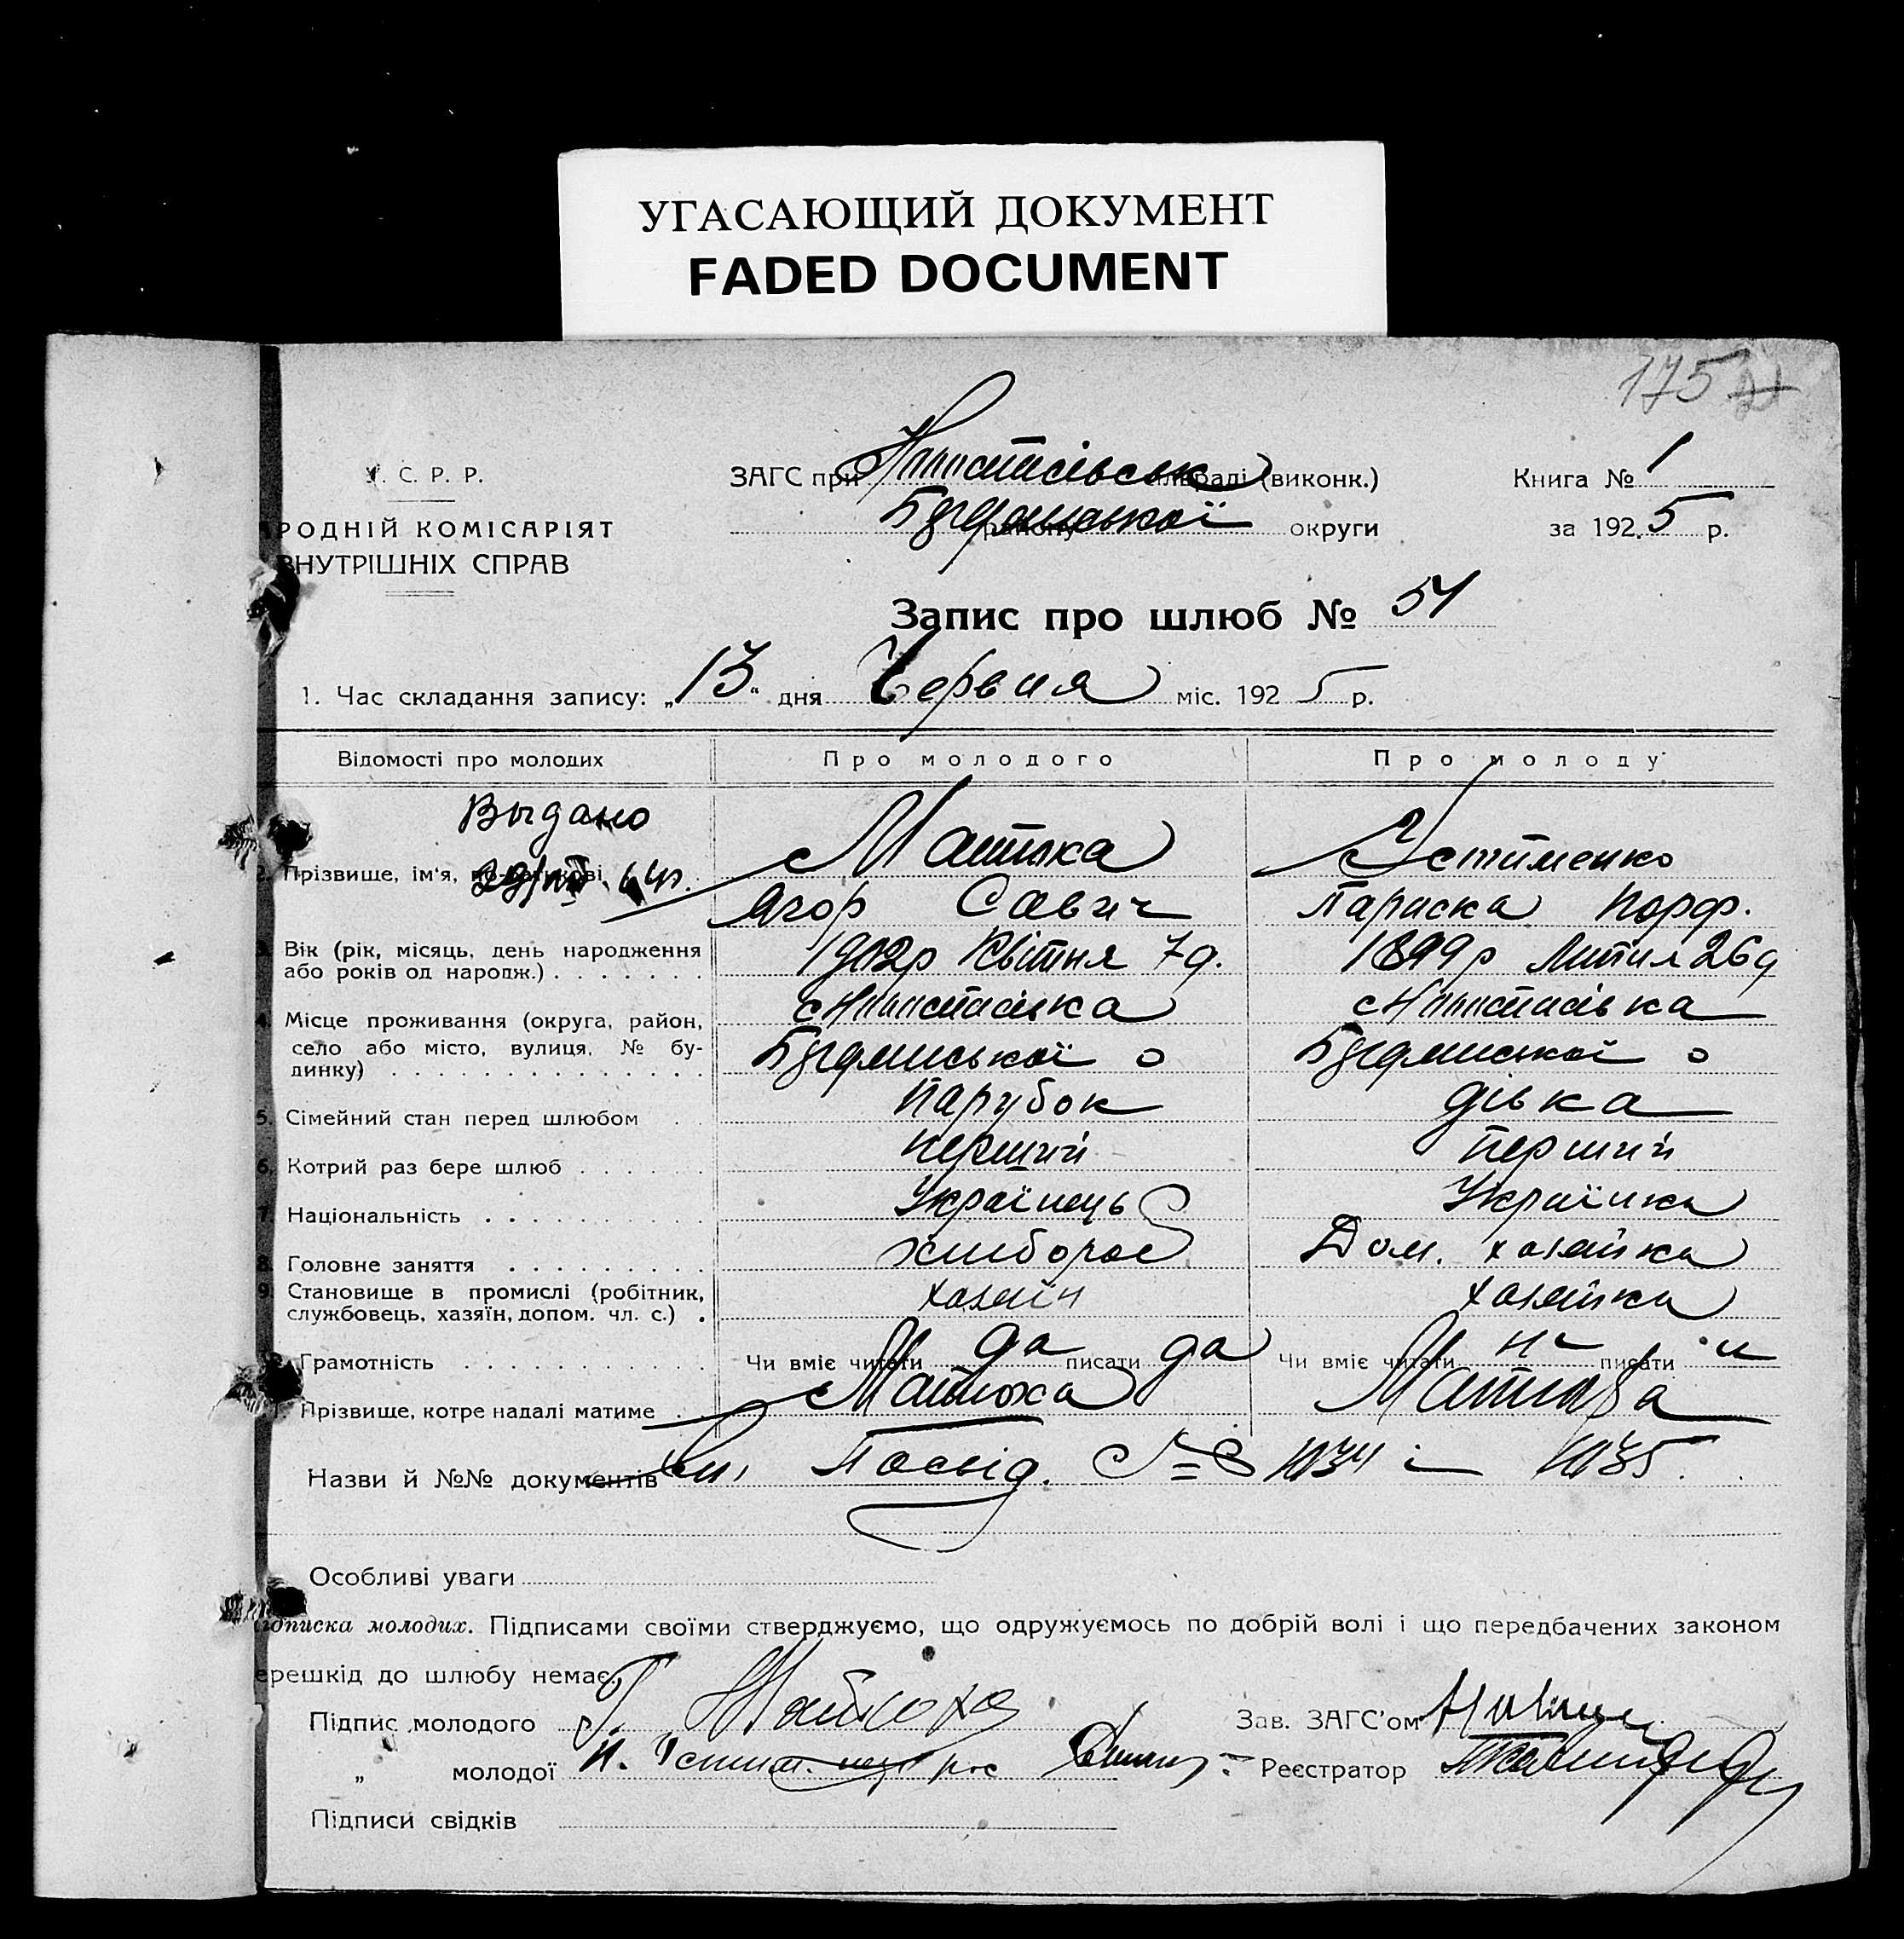 УГАСАЮЩИЙ ДОКУМЕНТ
FADED DOCUMENT
175
У. С. Р. Р.
РОДНІЙ КОМІСАРІЯТ
ВНУТРІШНІХ СПРАВ
ЗАГС при сільраді (виконк.)
району округи
Книга № 1
за 1925 р.
Запис про шлюб № 51
1. Час складання запису: „13" дня Червня міс. 1925 р.
Відомості про молодих
Про молодого
Про молоду
Выдано
2. Прізвище, ім'я, по-батькові
Устименко
Ягор Савич
Параска Порф.
3. Вік (рік, місяць, день народження
або років од народж.)
1902р Квітня 7д.
1899р Липня 26д
4. Місце проживання (округа, район,
село або місто, вулиця, № бу-
динку)
5. Сімейний стан перед шлюбом
Парубок
дівка
6. Котрий раз бере шлюб
перший
перший
7. Національність
Українець
Українка
8. Головне заняття
хлибороб
Дом. хазяйка
9. Становище в промислі (робітник,
службовець, хазяїн, допом. чл. с.)
хазяїн
хазяйка
Грамотність
Чи вміє читати да писати да
Чи вміє читати ні писати ні
Прізвище, котре надалі матиме
Матюха
Матюха
Назви й №№ документів Посвід. № 1034 і 1035.
Особливі уваги
ідписка молодих. Підписами своїми стверджуємо, що одружуємось по добрій волі і що передбачених законом
ерешкід до шлюбу немає.
Підпис молодого Матюха
„ молодої П. Устим.
Зав. ЗАГС'ом
Реєстратор
Підписи свідків